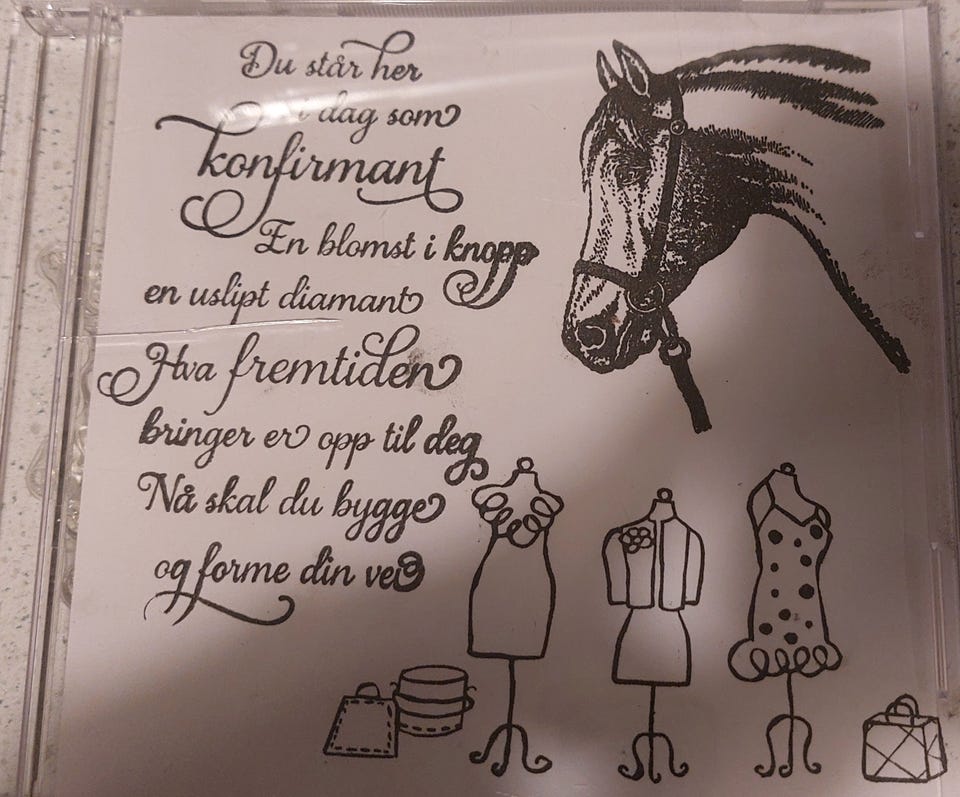 Du står her
i dag som
konfirmant
En blomst i knopp
en uslipt diamant
Hva fremtiden
bringer er opp til deg
Nå skal du bygge
og forme din vei